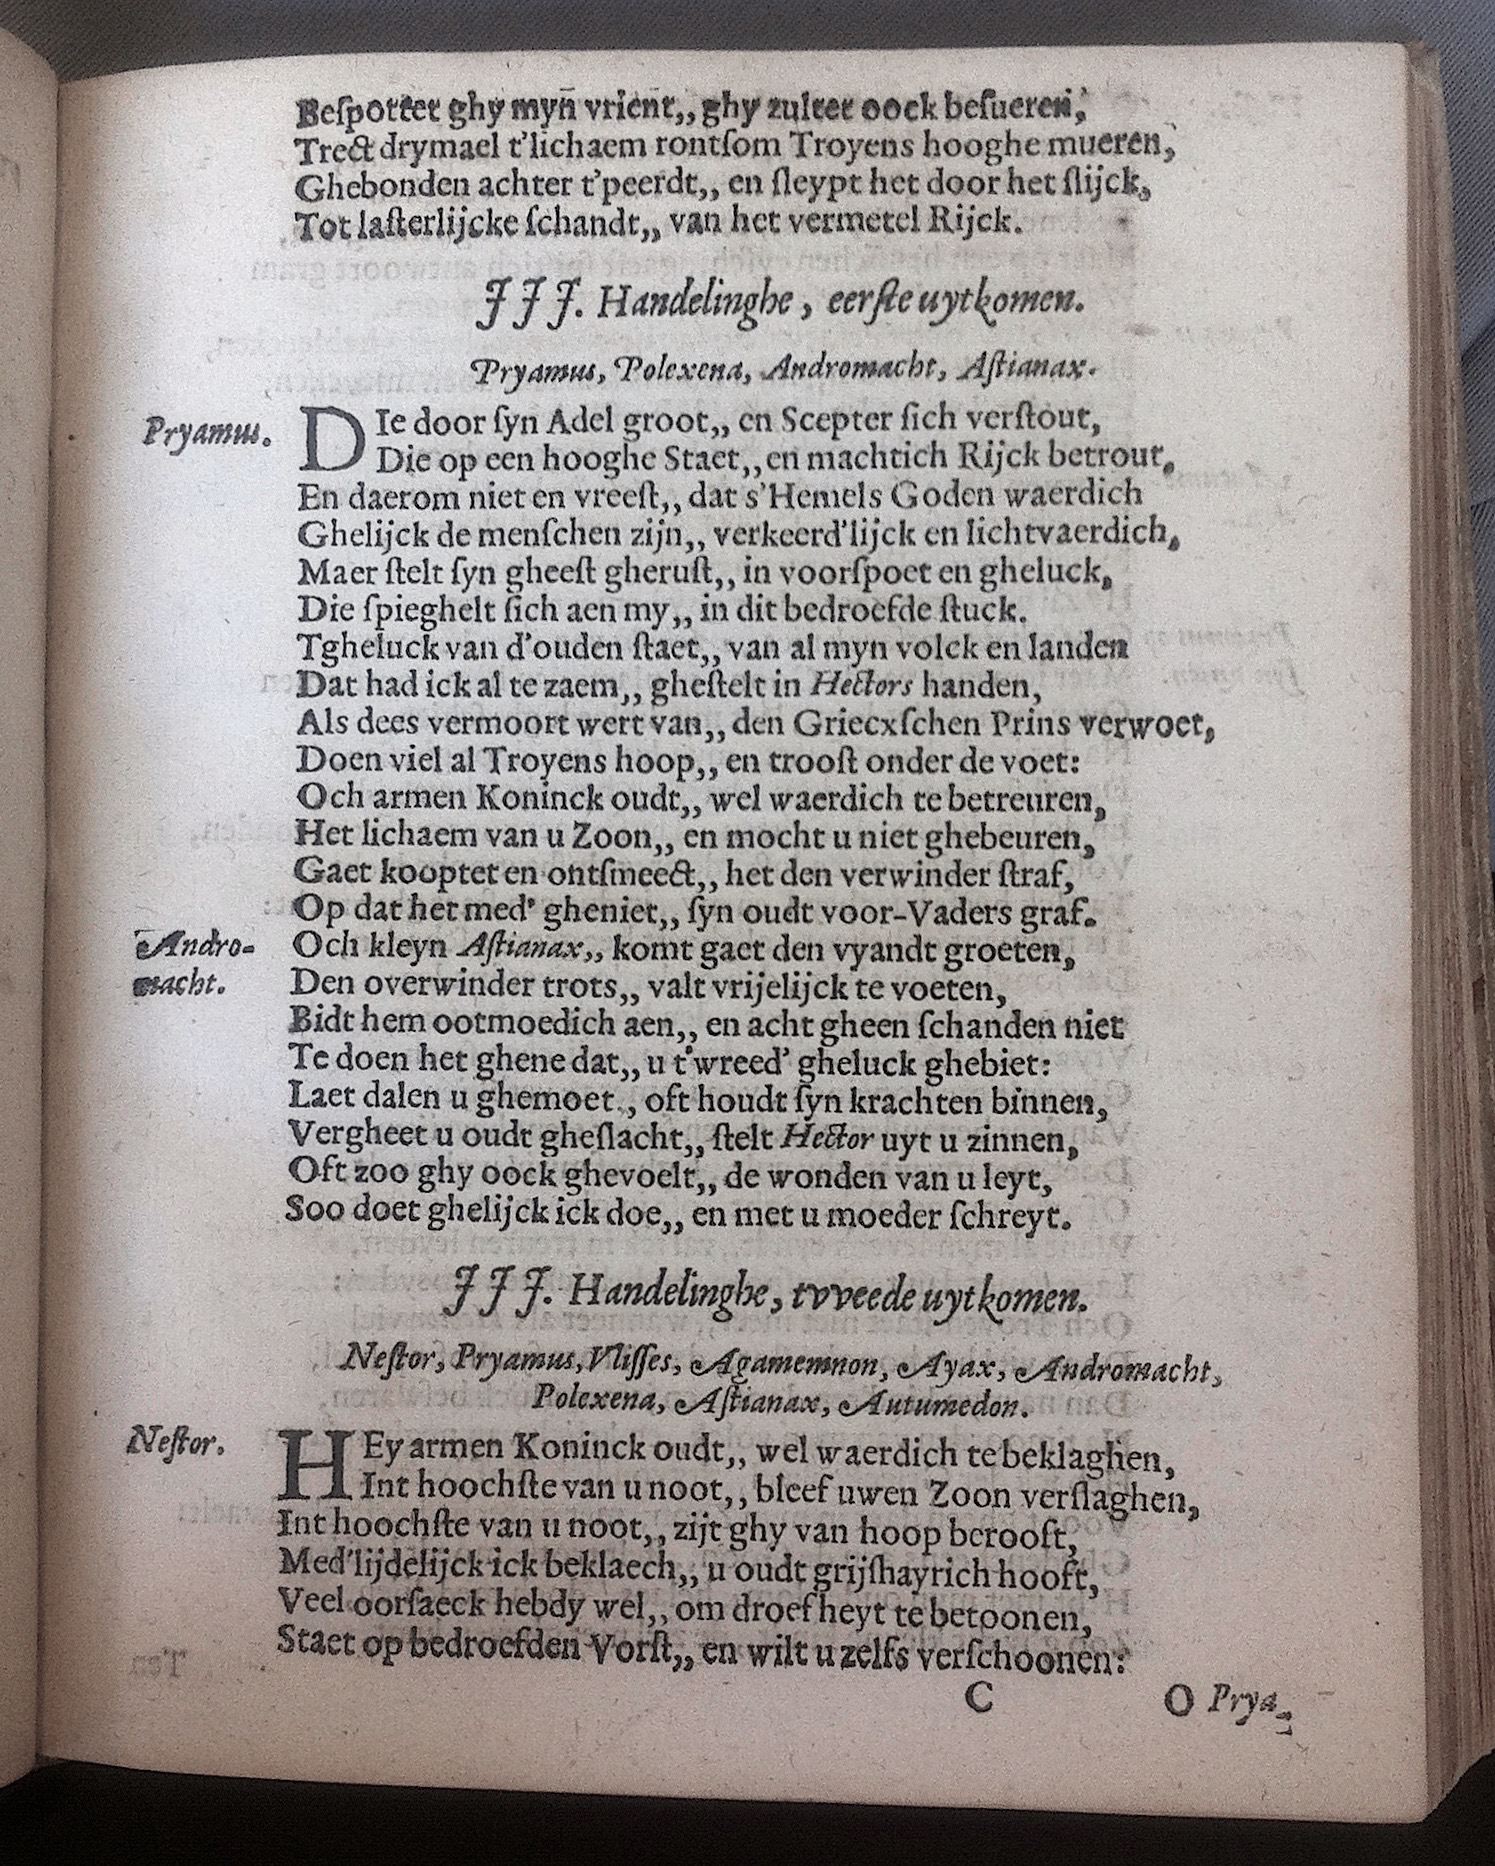 Beſpottet ghy mijn vrient,, ghy zultet oock beſueren,
Trect drymael t'lichaem rontſom Troyens hooghe mueren,
Ghebonden achter t'peerdt,, en ſleypt het door het ſlijck,
Tot laſterlijcke ſchandt,, van het vermetel Rijck.
JJJ. Handelinghe, eerſte uytkomen.
Pryamus, Polexena, Andromacht, Aſtianax.
Pryamus. DIe door ſyn Adel groot,, en Scepter ſich verſtout,
Die op een hooghe Staet,, en machtich Rijck betrout,
En daerom niet en vreeſt,, dat s'Hemels Goden waerdich
Ghelijck de menſchen zijn,, verkeerd'lijck en lichtvaerdich,
Maer ſtelt ſyn gheeſt gheruſt,, in voorſpoet en gheluck,
Die ſpieghelt ſich aen my,, in dit bedroefde ſtuck.
Tgheluck van d'ouden ſtaet,, van al myn volck en landen
Dat had ick al te zaem,, gheſtelt in Hectors handen,
Als dees vermoort wert van,, den Griecxſchen Prins verwoet,
Doen viel al Troyens hoop,, en trooſt onder de voet:
Och armen Koninck oudt,, wel waerdich te betreuren,
Het lichaem van u Zoon,, en mocht u niet ghebeuren,
Gaet kooptet en ontſmeect,, het den verwinder ſtraf,
Op dat het med' gheniet,, ſyn oudt voor-Vaders graf.
Andro- Och kleyn Aſtianax,, komt gaet den vyandt groeten,
macht. Den overwinder trots,, valt vrijelijck te voeten,
Bidt hem ootmoedich aen,, en acht gheen ſchanden niet
Te doen het ghene dat,, u t'wreed' gheluck ghebiet:
Laet dalen u ghemoet., oft houdt ſyn krachten binnen,
Vergheet u oudt gheſlacht,, ſtelt Hector uyt u zinnen,
Oft zoo ghy oock ghevoelt,, de wonden van u leyt,
Soo doet ghelijck ick doe,, en met u moeder ſchreyt.
JJJ. Handelinghe, tvveede uytkomen.
Neſtor, Pryamus, Vliſſes, Agamemnon, Ayax, Andromacht,
Polexena, Aſtianax, Autumedon.
Neſtor. HEy armen Koninck oudt,, wel waerdich te beklaghen,
Int hoochſte van u noot,, bleef uwen Zoon verſlaghen,
Int hoochſte van u noot,, zijt ghy van hoop berooft,
Med'lijdelijck ick beklaech,, u oudt grijſhayrich hooft,
Veel oorſaeck hebdy wel,, om droefheyt te betoonen,
Staet op bedroefden Vorſt,, en wilt u zelfs verſchoonen:
C O Prya-